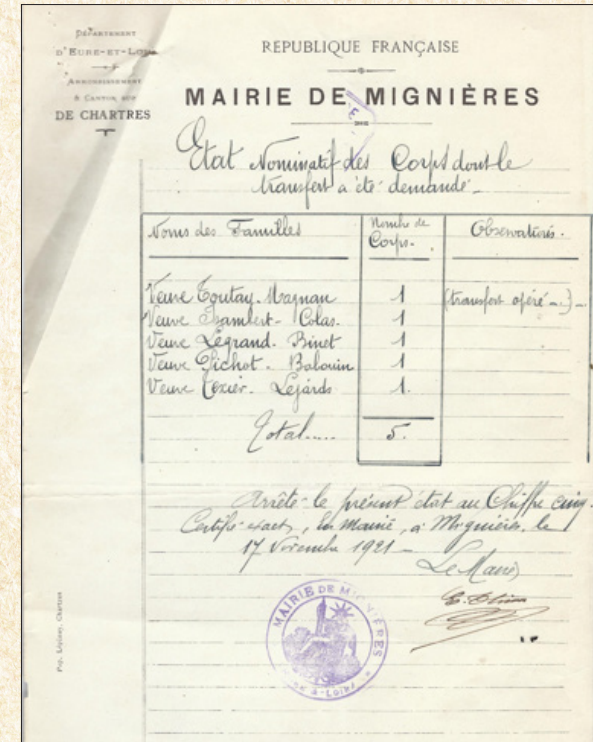 DÉPARTEMENT
D'EURE-ET-LOIR
ARRONDISSEMENT
& CANTON
DE CHARTRES
REPUBLIQUE FRANÇAISE
MAIRIE DE MIGNIÈRES
Etat Nominatif des Corps dont le
transfert a été demandé_
Noms des Familles
Nombre de
Corps.
Observations.
Veuve Toutay. Magnan 1 (transfert opéré _)_
Veuve Isambert - Colas. 1
Veuve Legrand. Binet 1
Veuve Pichot. 1
Veuve Texier. Lejards 1.
Total.... 5.
Arrêté le présent état au Chiffre cinq.
Certifié exact, En Mairie, à Mignières, le
17 Novembre 1921_
Le Maire
MAIRIE DE MIGNIÈRES